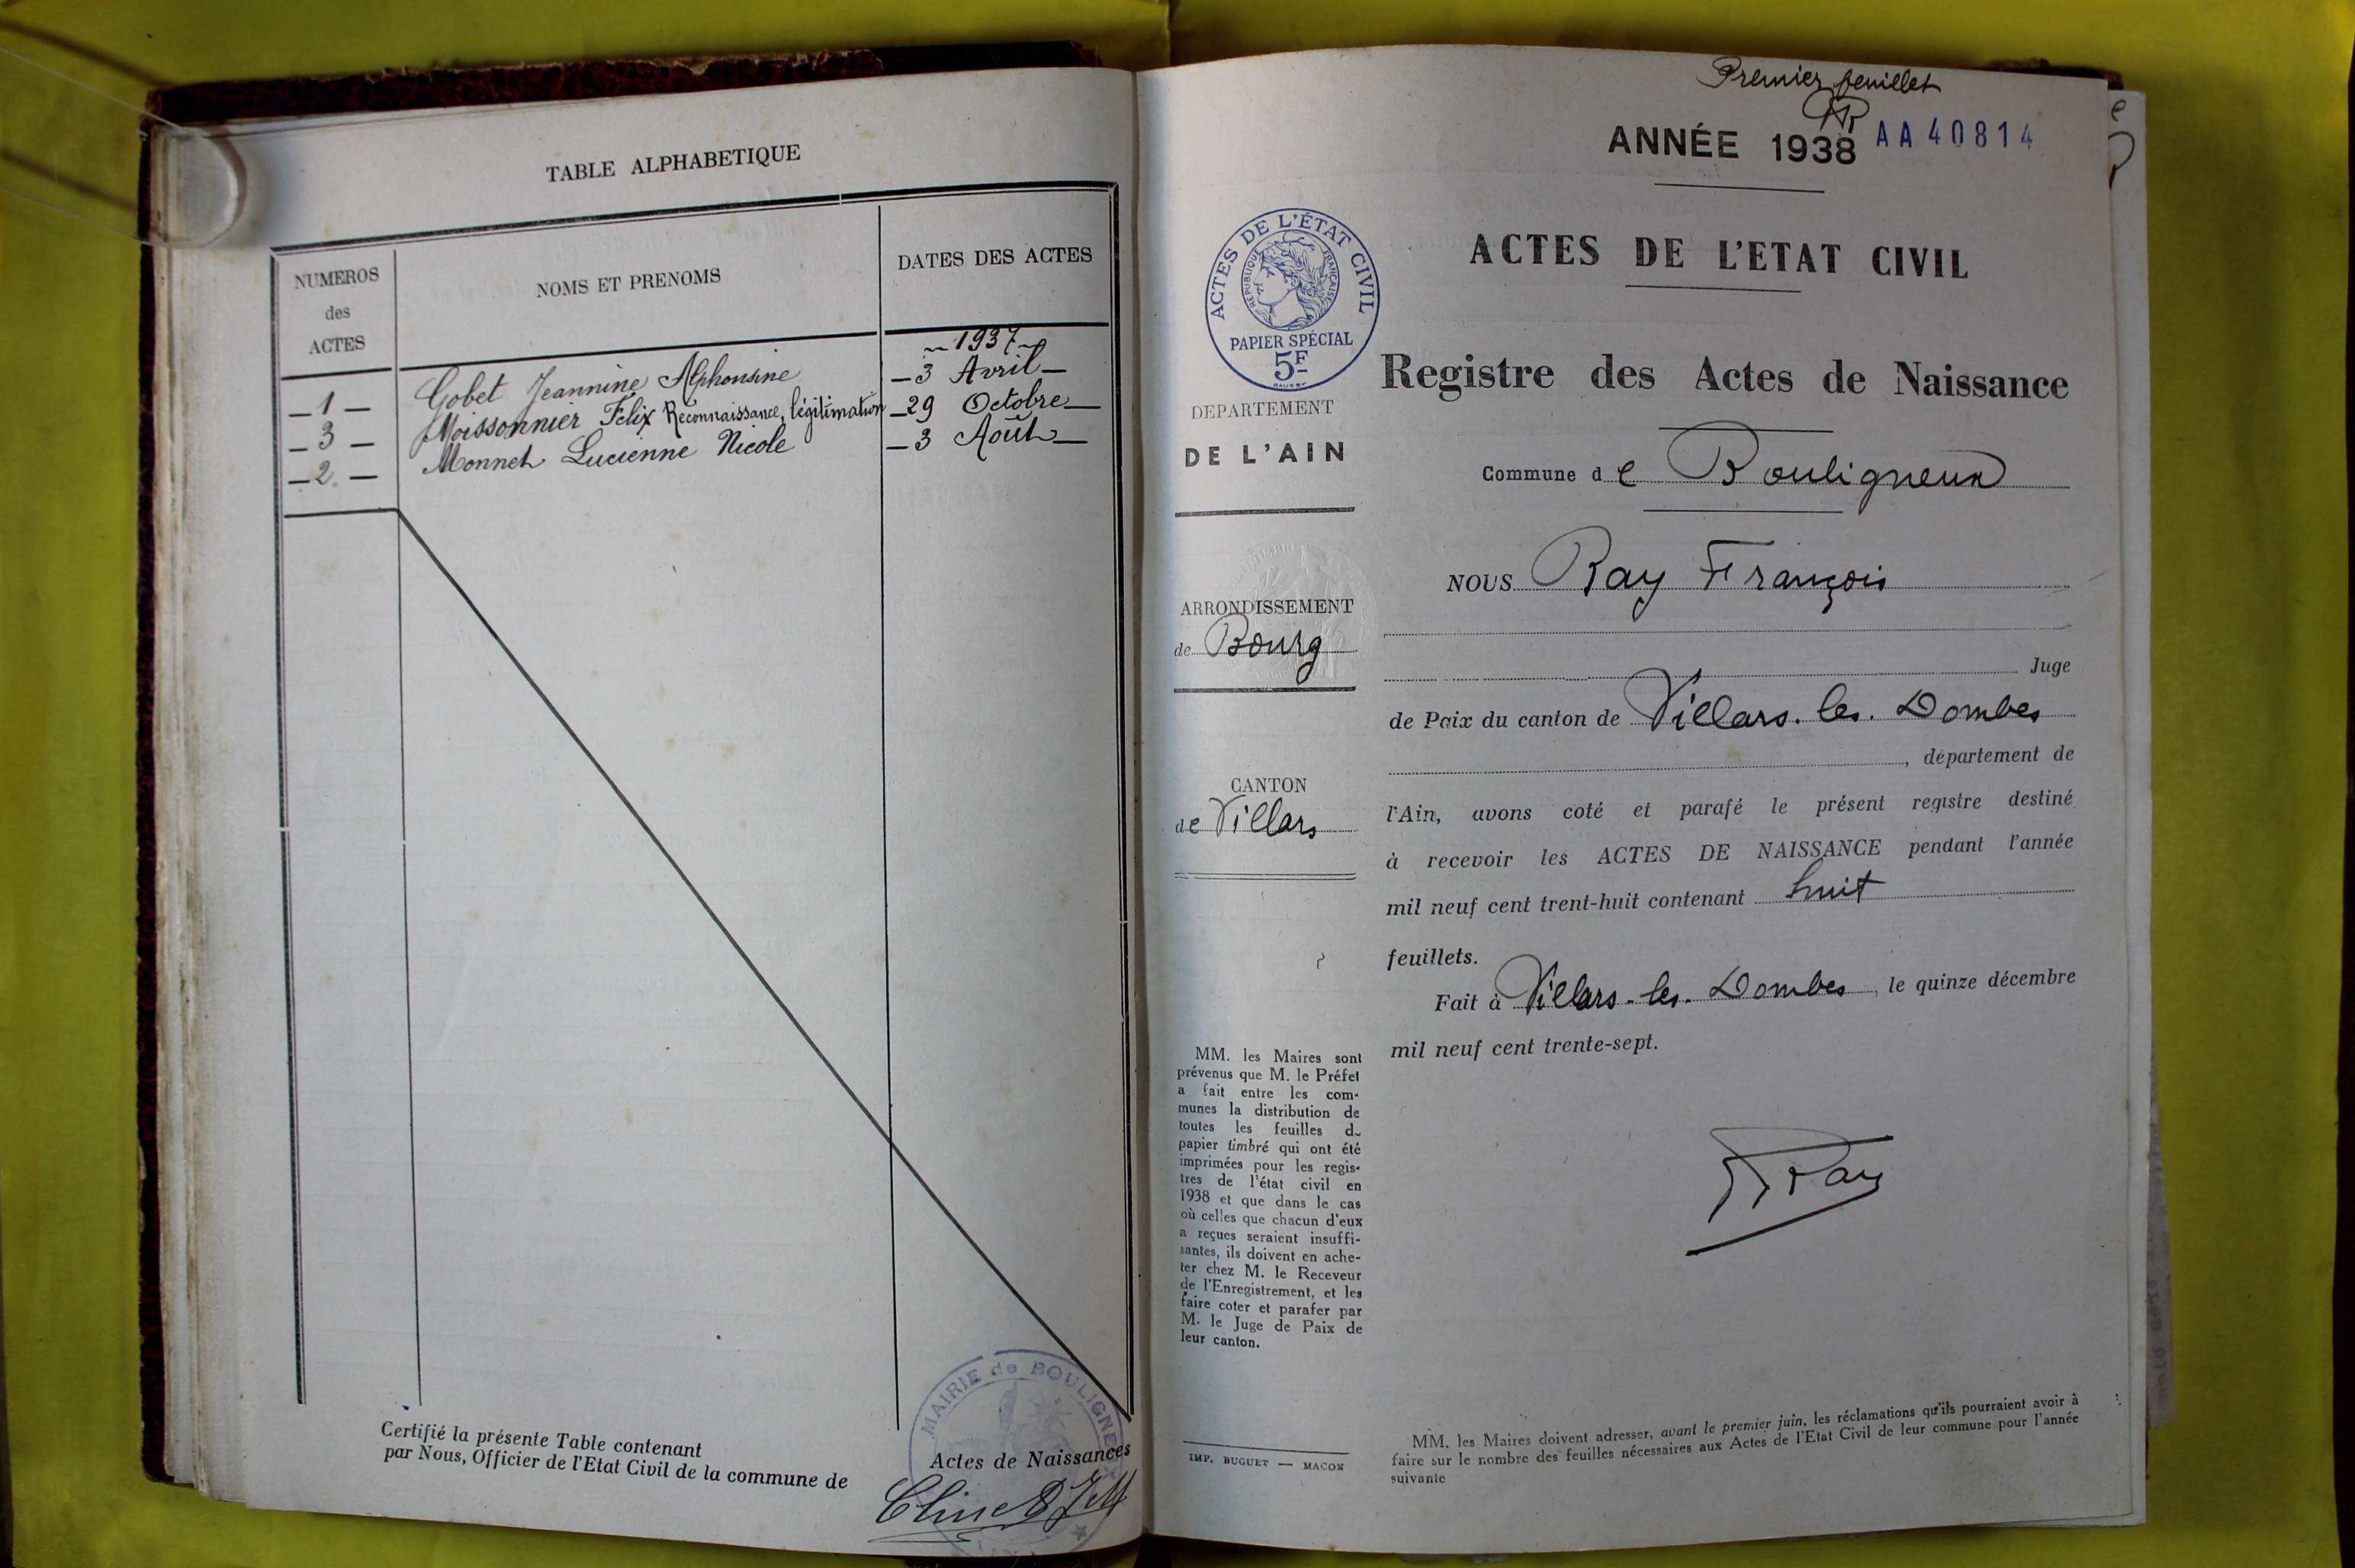 TABLE ALPHABETIQUE
NUMEROS
des
ACTES
NOMS ET PRENOMS
DATES DES ACTES
1937
1 Gobet Jeannine Alphonsine 3 Avril
3 Moissonnier Félix Reconnaissance, légitimation 29 Octobre
2 Monnet Lucienne Nicole 3 Août
Certifié la présente Table contenant
Actes de Naissances
par Nous, Officier de l'Etat Civil de la commune de
MAIRIE de BOULIGNE
Premier feuillet
ANNÉE 1938 AA40814
ACTES DE L'ÉTAT CIVIL
RÉPUBLIQUE FRANÇAISE
PAPIER SPÉCIAL
5F
DEPARTEMENT
DE L'AIN
ARRONDISSEMENT
de Bourg
CANTON
de Villars
MM. les Maires sont
prévenus que M. le Préfet
a fait entre les com-
munes la distribution de
toutes les feuilles de
papier timbré qui ont été
imprimées pour les regis-
tres de l'état civil en
1938 et que dans le cas
où celles que chacun d'eux
a reçues seraient insuffi-
santes, ils doivent en ache-
ter chez M. le Receveur
de l'Enregistrement, et les
faire coter et parafer par
M. le Juge de Paix de
leur canton.
IMP. BUGUET — MACON
ACTES DE L'ETAT CIVIL
Registre des Actes de Naissance
Commune de Bouligneux
NOUS Ray François
Juge
de Paix du canton de Villars. les. Dombes
, département de
l'Ain, avons coté et parafé le présent registre destiné
à recevoir les ACTES DE NAISSANCE pendant l'année
mil neuf cent trent-huit contenant huit
feuillets.
Fait à Villars-les-Dombes, le quinze décembre
mil neuf cent trente-sept.
Ray
MM. les Maires doivent adresser, avant le premier juin, les réclamations qu'ils pourraient avoir à
faire sur le nombre des feuilles nécessaires aux Actes de l'Etat Civil de leur commune pour l'année
suivante